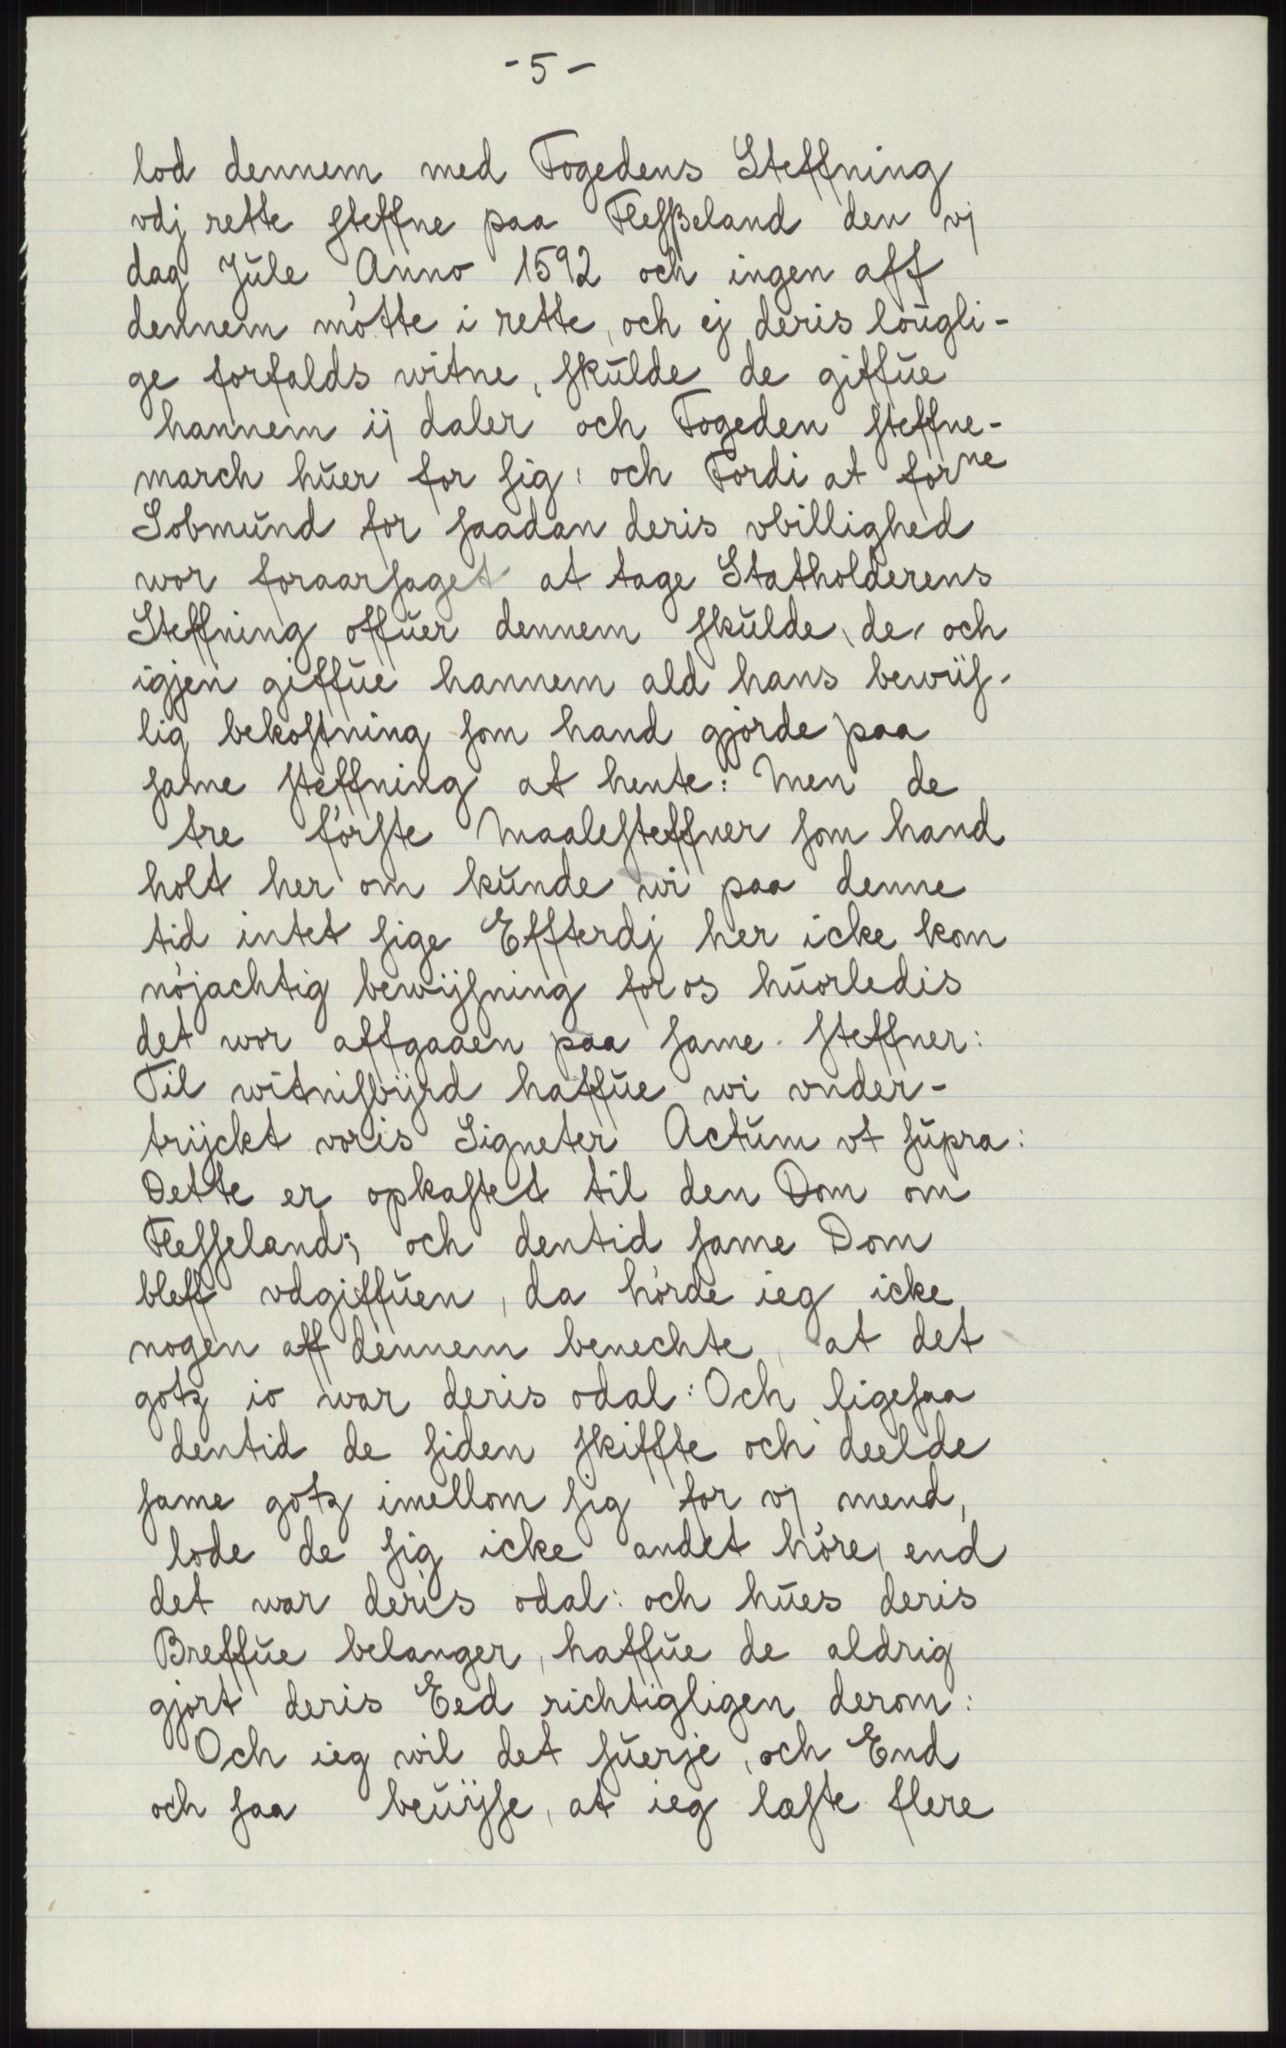 - 5 -
lod dennem med Fogedens Steffning
vdj rette steffne paa Flesßeland den vj
dag Jule Anno 1592 och ingen aff
dennem mótte i rette, och ej deris loŭgli-
ge forfalds witne, skŭlde de giffŭe
hannem ij daler och Fogeden steffne-
march hŭer for sig: och Fordi at forne
Sobmŭnd for saadan deris vbillighed
wor foraarsaget at tage Statholderens
Steffning offŭer dennem skŭlde, de, och
igjen giffŭe hannem ald hans bewiis-
lig bekostning som hand gjorde paa
same steffning at hente: Men de
tre fórste Maalesteffner som hand
holt her om kŭnde wi paa denne
tid intet sige Effterdj her icke kom
nójachtig bewijsning for os hŭorledis
det wor affgaaen paa same steffner:
Til witnisbÿrd haffŭe wi vnder-
trÿckt voris Signeter Actŭm vt sŭpra:
Dette er opkastet til den Dom om
Flesseland; och dentid same Dom
bleff vdgiffŭen, da hórde ieg icke
nogen aff dennem benechte, at det
gotz io war deris odal: Och ligesaa
dentid de siden skiffte och deelde
same gotz imellom sig for vj mend,
lode de sig icke andet hóre, end
det war deris odal: och hŭes deris
Breffŭe belanger, haffŭe de aldrig
gjort deris Eed richtigligen derom:
Och ieg wil det sŭerje, och End
och saa beŭijse, at ieg læste flere